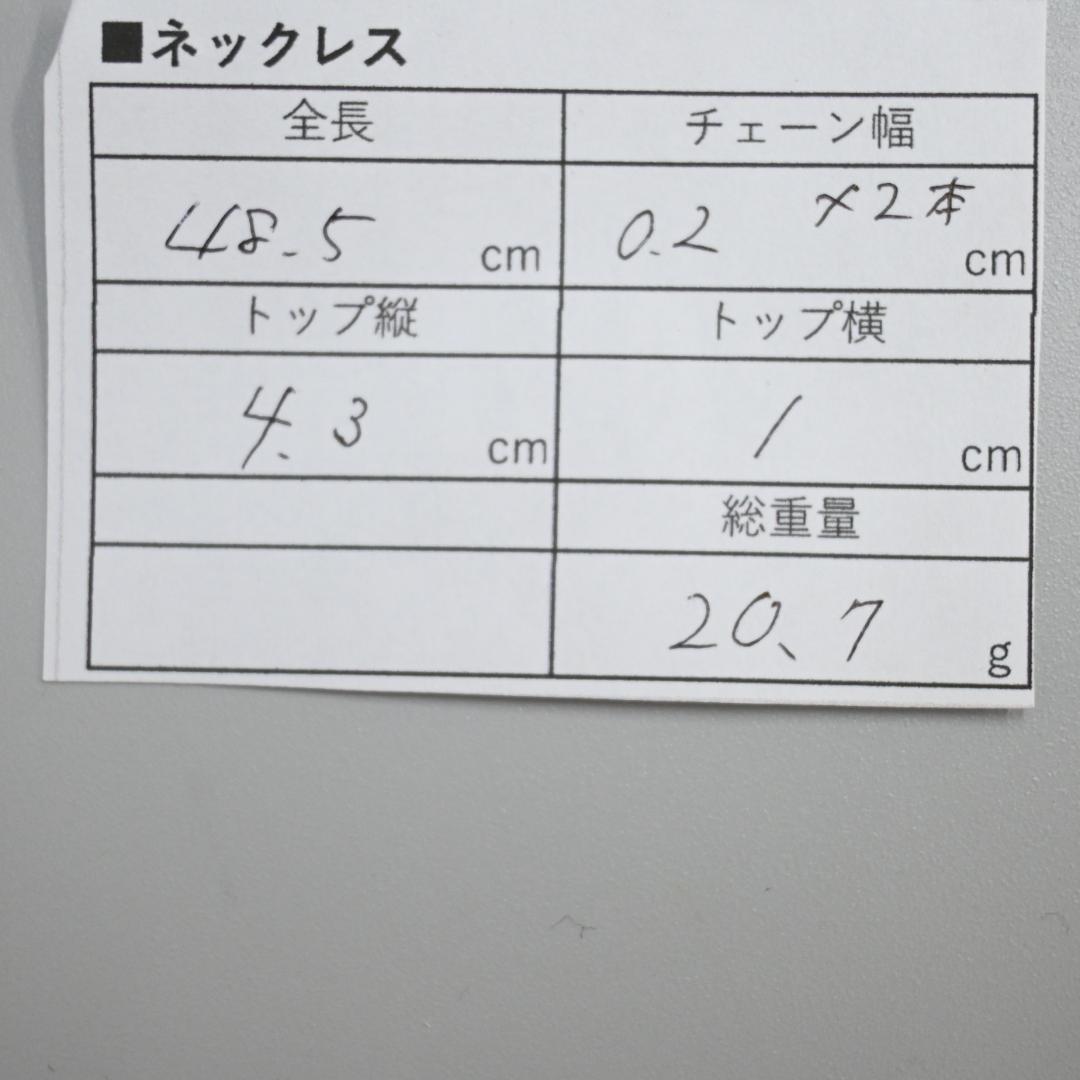 ■ネックレス
全長 チェーン幅
48.5 cm 0.2 ×2本 cm
トップ縦 トップ横
4.3 cm 1 cm
総重量
20.7 g